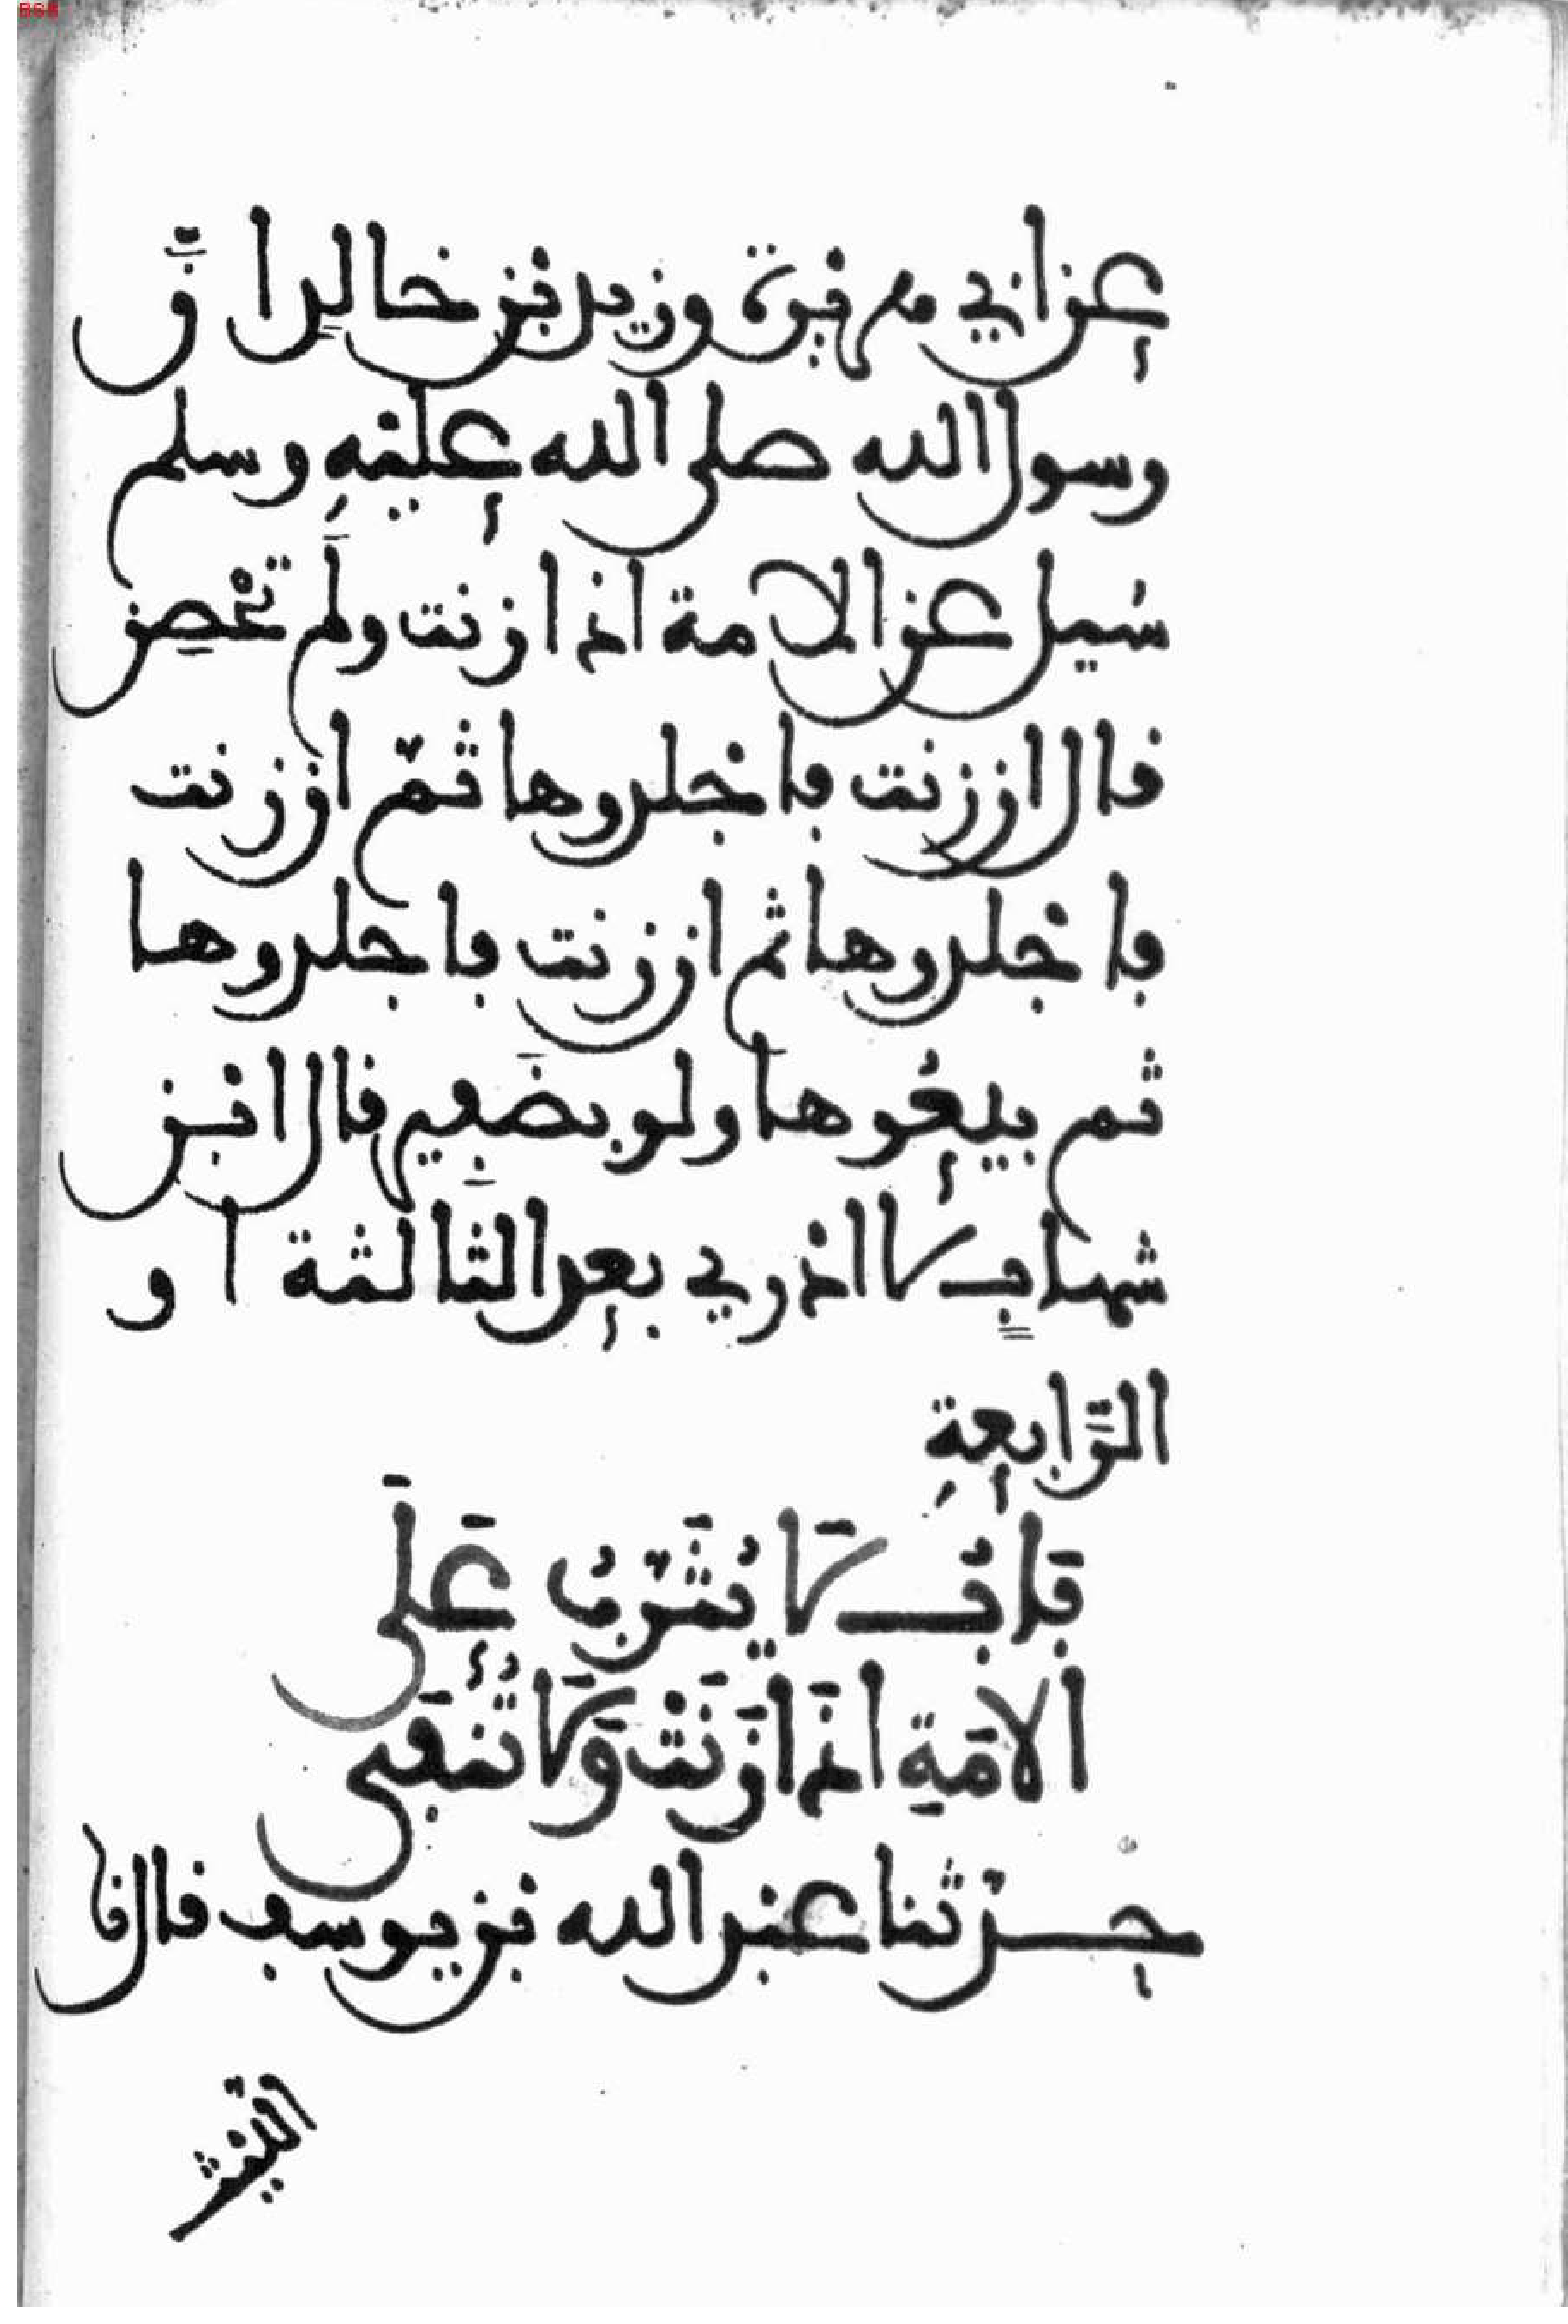 عن ابي هريرة وزيد بن خالد انَّ
رسول الله صلى الله عليه وسلم
سُيل عن الامة اذا زنت ولَم تُحْصِن
قال ان زنت فاجلدوها ثمّ ان زنت
فاجلدوها ثم ان زنت فاجلدوها
ثم بيعُوها ولو بضَفِير قال ابن
شهابٍ لا ادري بعد الثَّالثة او
الرَّابعةِ
بَابُ لَا يُثَرَّبُ عَلَى
الامَةِ اذَا زَنَتْ وَلَا تُنْفَى
حدثنا عبد الله بن يوسف قال نا
اللَّيث